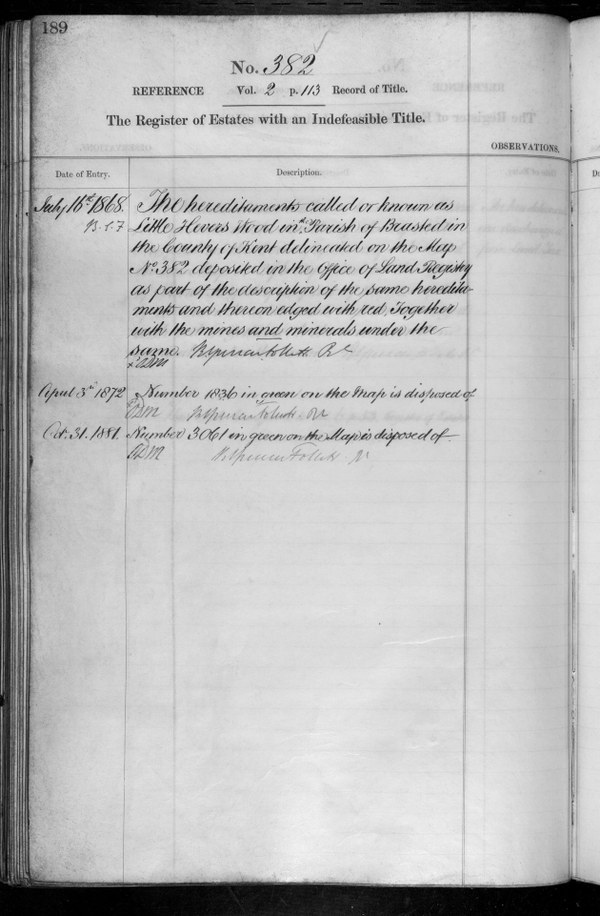 189
No. 382
REFERENCE Vol. 2 p. 113 Record of Title.
The Register of Estates with an Indefeasible Title.
OBSERVATIONS.
Date of Entry. Description.
July 16th 1868. The heredituments called or known as
Little Hovers Wood in Parish of Brasted in
the County of Kent delineated on the Map
No. 382 deposited in the Office of Land Registry
as part of the description of the same heredita-
ments and thereon edged with red, Together
with the mines and minerals under the
same
April 3rd 1872 Number 1836 in green on the Map is disposed of
Oct. 31. 1881. Number 3061 in green on the Map is disposed of